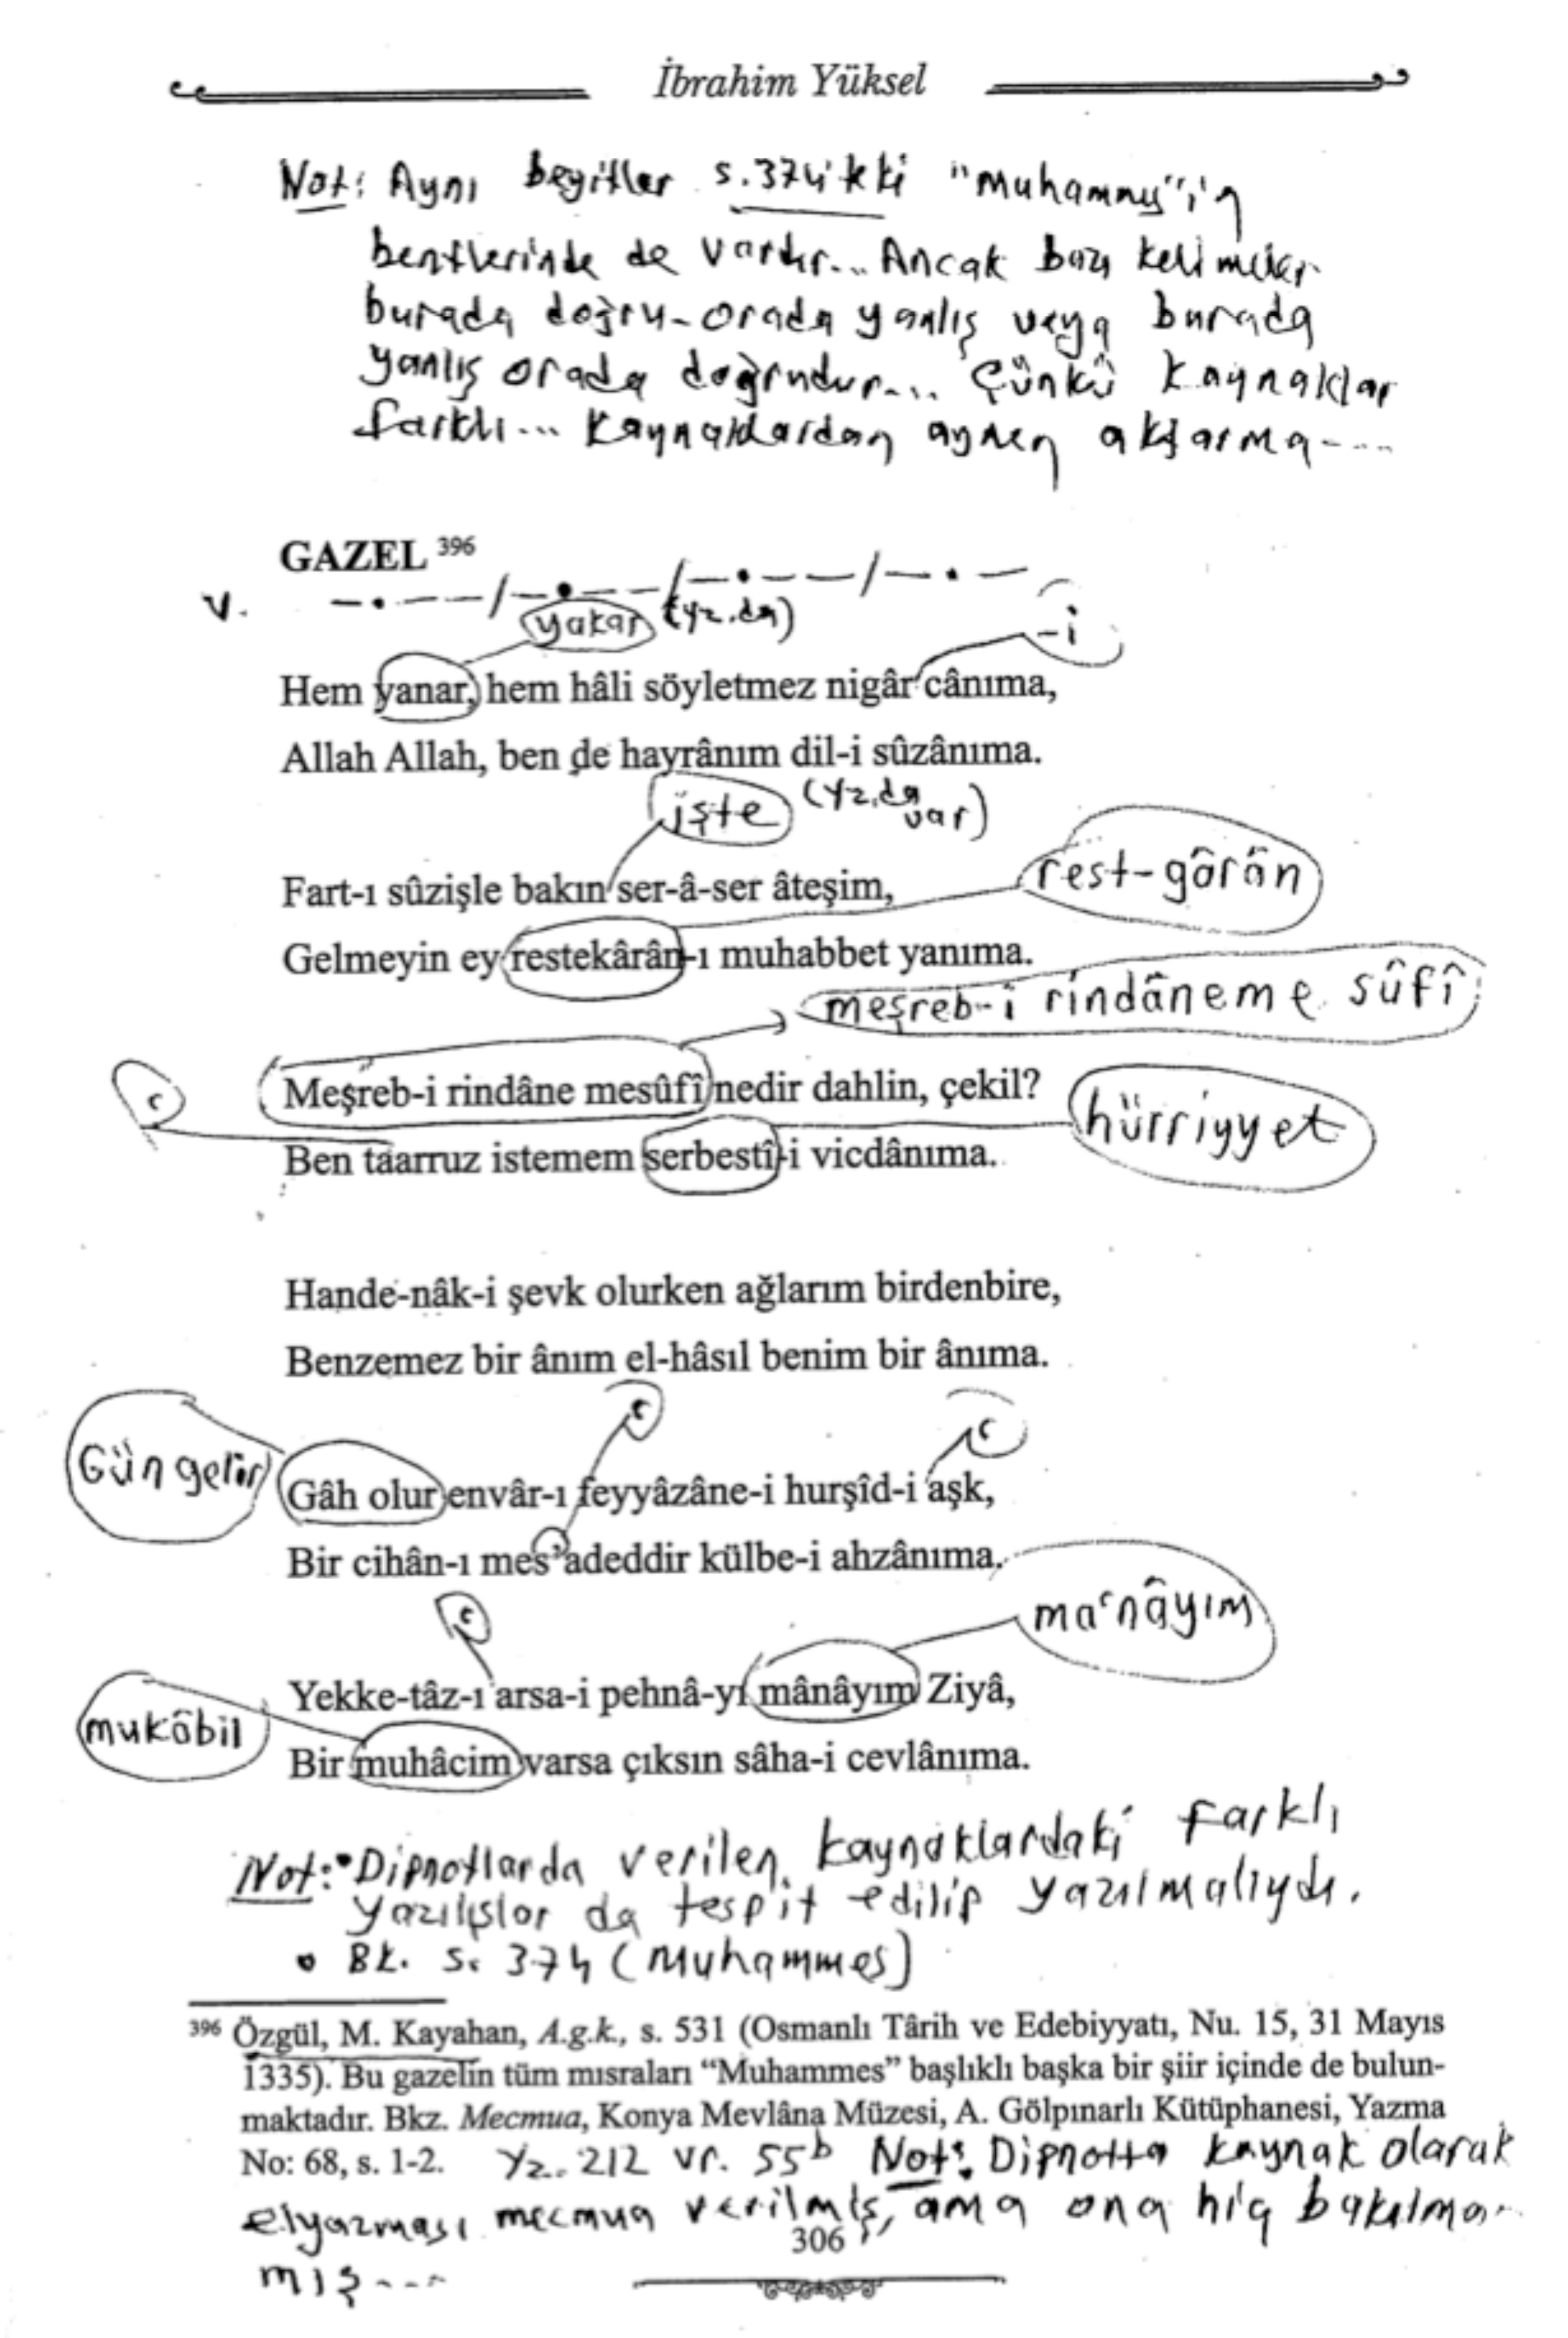 İbrahim Yüksel
Not: Aynı beyitler s.374'tekki "muhammes"'in
bentlerinde de vardır... Ancak bazı kelimeler
burada doğru-orada yanlış veya burada
yanlış orada doğrudur... Çünkü kaynaklar
farklı... Kaynaklardan aynen aktarma....
GAZEL 396
v. —•——/—•——/—•——/—•—
yakar (yz.da) -i
Hem yanar, hem hâli söyletmez nigâr cânıma,
Allah Allah, ben de hayrânım dil-i sûzânıma.
işte (yz.da var)
Fart-ı sûzişle bakın ser-â-ser âteşim,
rest-gârân
Gelmeyin ey restekârân-ı muhabbet yanıma.
meşreb-i rindâneme sûfî
Meşreb-i rindâne mesûfî nedir dahlin, çekil?
hürriyyet
Ben taarruz istemem serbestî-i vicdânıma.
Hande-nâk-i şevk olurken ağlarım birdenbire,
Benzemez bir ânım el-hâsıl benim bir ânıma.
Gün gelir
Gâh olur envâr-ı feyyâzâne-i hurşîd-i aşk,
Bir cihân-ı mes'adeddir külbe-i ahzânıma.
ma'nâyım
Yekke-tâz-ı arsa-i pehnâ-yı mânâyım Ziyâ,
mukâbil
Bir muhâcim varsa çıksın sâha-i cevlânıma.
Not: • Dipnotlarda verilen kaynaklardaki farklı
yazılışlar da tespit edilip yazılmalıydı.
• Bk. s. 374 (Muhammes)
396 Özgül, M. Kayahan, A.g.k., s. 531 (Osmanlı Târih ve Edebiyyatı, Nu. 15, 31 Mayıs
1335). Bu gazelin tüm mısraları “Muhammes” başlıklı başka bir şiir içinde de bulun-
maktadır. Bkz. Mecmua, Konya Mevlâna Müzesi, A. Gölpınarlı Kütüphanesi, Yazma
No: 68, s. 1-2. Yz. 212 vr. 55b Not: Dipnotta kaynak olarak
elyazması mecmua verilmiş, ama ona hiç bakılma-
306
mış...